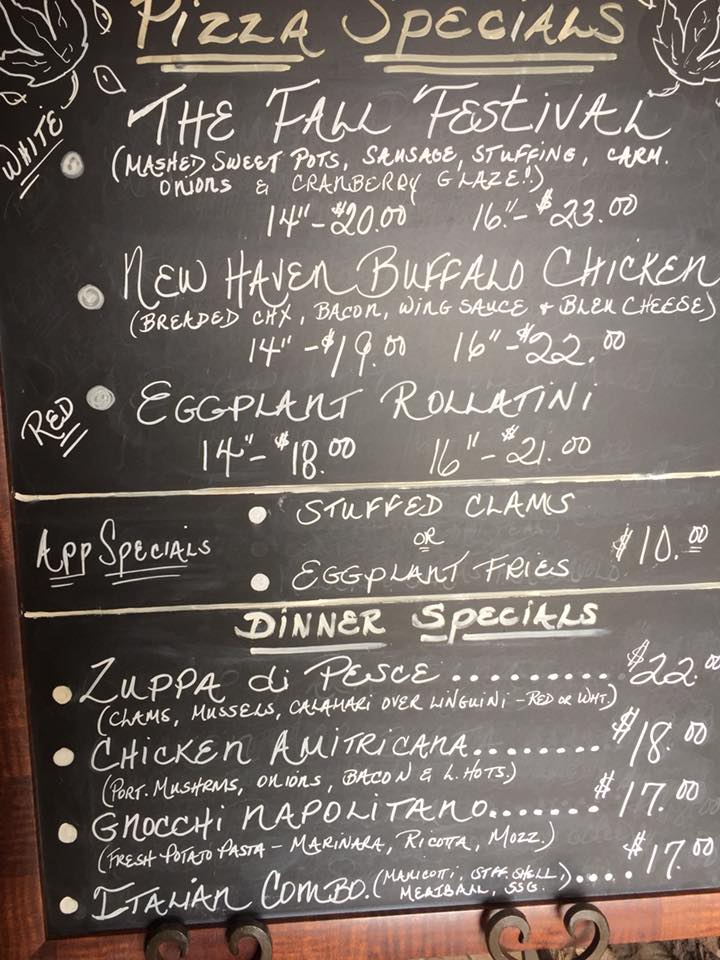 PIZZA SPECIALS
WHITE
THE FALL FESTIVAL
(MASHED SWEET POTS, SAUSAGE, STUFFING, CARM.
ONIONS & CRANBERRY GLAZE!!)
14"-$20.00 16"-$23.00
NEW HAVEN BUFFALO CHICKEN
(BREADED CHX, BACON, WING SAUCE + BLEU CHEESE)
14"-$19.00 16"-$22.00
RED
EGGPLANT ROLLATINI
14"-$18.00 16"-$21.00
APP SPECIALS
STUFFED CLAMS
OR
$10.00
EGGPLANT FRIES
DINNER SPECIALS
ZUPPA di PESCE.......... $22.00
(CLAMS, MUSSELS, CALAMARI OVER LINGUINI - RED OR WHT.)
CHICKEN AMITRICANA........ $18.00
(PORT. MUSHRMS, ONIONS, BACON & L. HOTS.)
GNOCCHI NAPOLITANO....... $17.00
(FRESH POTATO PASTA - MARINARA, RICOTTA, MOZZ.)
ITALIAN COMBO. (MANICOTTI, STFF. SHELL, MEATBALL, SSG.).... $17.00